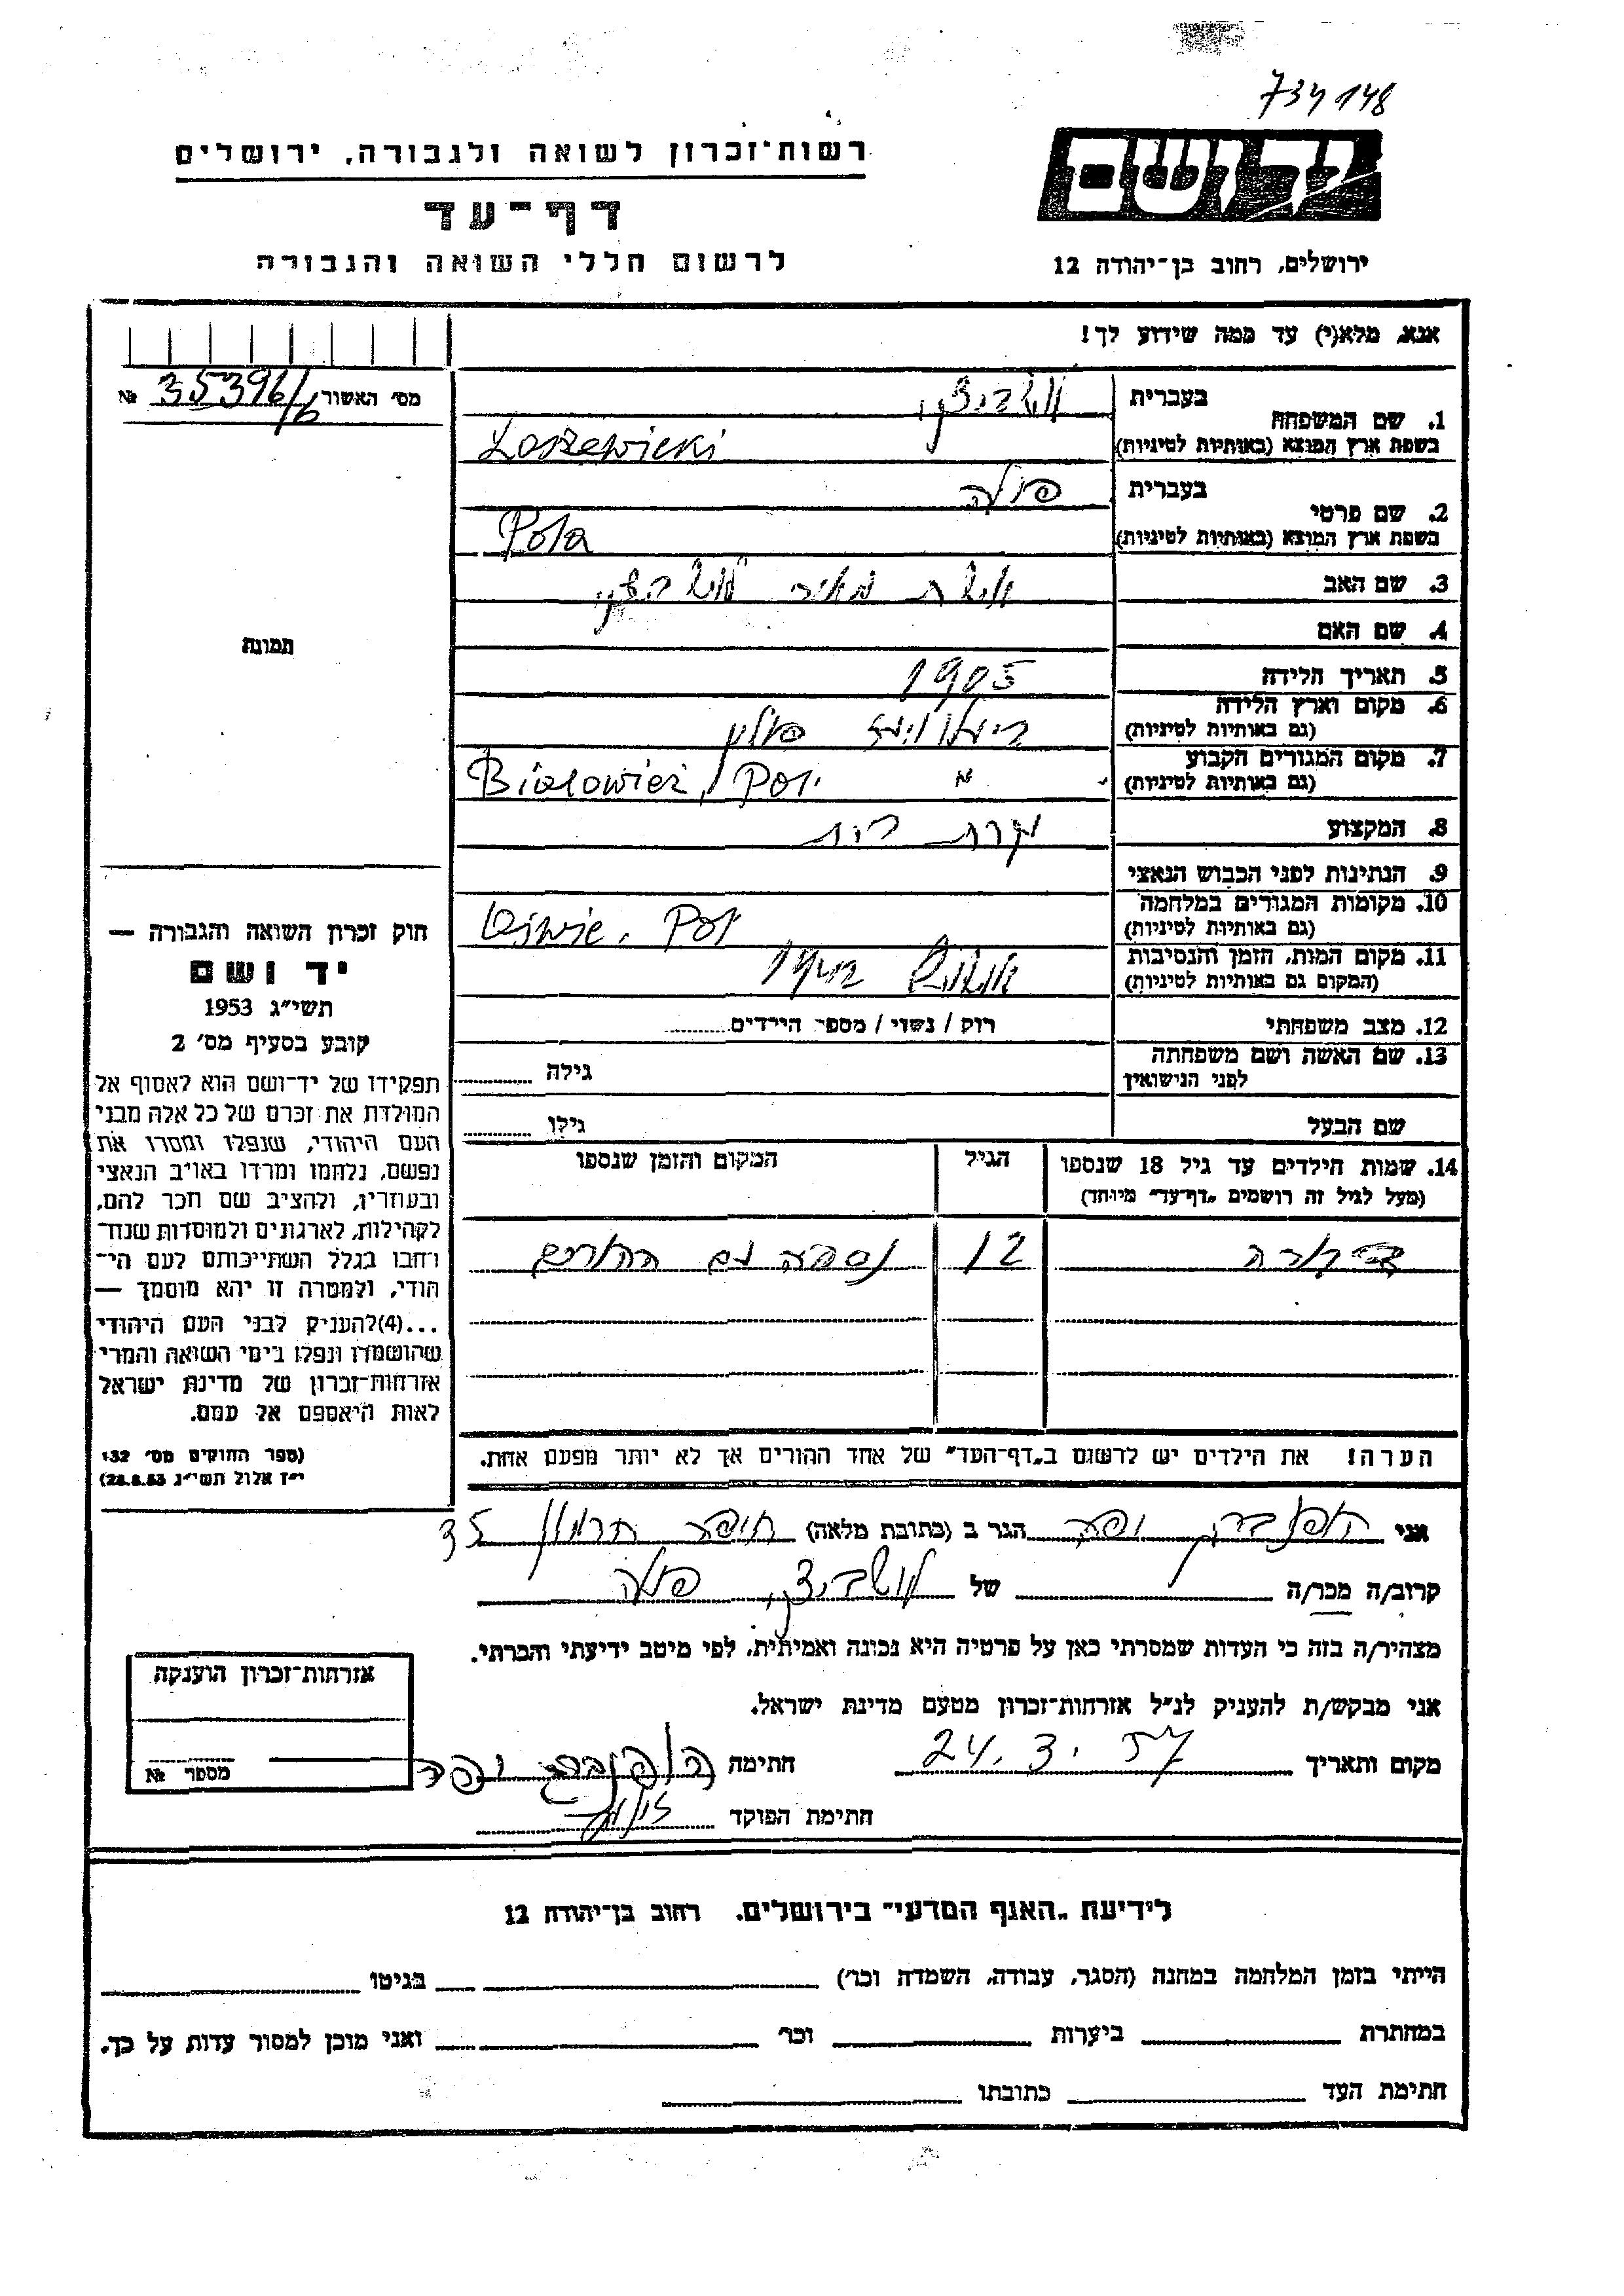 734148
רשות־זכרון לשואה ולגבורה, ירושלים
דף־עד
לרשום חללי השואה והגבורה
יד ושם
ירושלים, רחוב בן־יהודה 12
אנא, מלא(י) עד כמה שידוע לך!
מס' האשור 35396/6 №
1. שם המשפחה
בעברית
בשפת ארץ המוצא (באותיות לטיניות) Loszewicki
2. שם פרטי
בעברית פולה
בשפת ארץ המוצא (באותיות לטיניות) Pola
3. שם האב אשת מאיר
4. שם האם
5. תאריך הלידה 1905
6. מקום וארץ הלידה פולין
(גם באותיות לטיניות)
7. מקום המגורים הקבוע "
(גם באותיות לטיניות) Bialowież, Pol.
8. המקצוע עקרת בית
9. הנתינות לפני הכבוש הנאצי
10. מקומות המגורים במלחמה
(גם באותיות לטיניות) Pol
11. מקום המות, הזמן והנסיבות
(המקום גם באותיות לטיניות)
12. מצב משפחתי רוק / נשוי / מספר הירדים
13. שם האשה ושם משפחתה
לפני הנישואין
גילה
שם הבעל גילו
14. שמות הילדים עד גיל 18 שנספו
(מעל לגיל זה רושמים „דף־עד" מיוחד)
הגיל
המקום והזמן שנספו
12 נספה עם ההורים
הערה! את הילדים יש לרשום ב„דף־העד" של אחד ההורים אך לא יותר מפעם אחת.
תמונה
חוק זכרון השואה והגבורה —
יד ושם
תשי"ג 1953
קובע בסעיף מס' 2
תפקידו של יד־ושם הוא לאסוף אל
המולדת את זכרם של כל אלה מבני
העם היהודי, שנפלו ומסרו את
נפשם, נלחמו ומרדו באויב הנאצי
ובעוזריו, ולהציב שם וזכר להם,
לקהילות, לארגונים ולמוסדות שנח־
רחבו בגלל השתייכותם לעם הי־
הודי, ולמטרה זו יהא מוסמך —
...(4)להעניק לבני העם היהודי
שהושמדו ונפלו בימי השואה והמרי
אזרחות־זכרון של מדינת ישראל
לאות היאספם אל עמם.
(ספר החוקים מס' 132
י"ז אלול תשי"ג 28.8.53)
אני יפה הגר ב (כתובת מלאה) חיפה חרמון 35
קרוב/ה מכר/ה של פולה
מצהיר/ה בזה כי העדות שמסרתי כאן על פרטיה היא נכונה ואמיתית, לפי מיטב ידיעתי והכרתי.
אני מבקש/ת להעניק לנ"ל אזרחות־זכרון מטעם מדינת ישראל.
מקום ותאריך 24.3.57 חתימה יפה
חתימת הפוקד
אזרחות־זכרון הוענקה
מספר №
לידיעת „האגף המדעי" בירושלים, רחוב בן־יהודה 12
הייתי בזמן המלחמה במחנה (הסגר, עבודה, השמדה וכו') בגיטו
במחתרת ביערות וכו' ואני מוכן למסור עדות על כך.
חתימת העד כתובתו